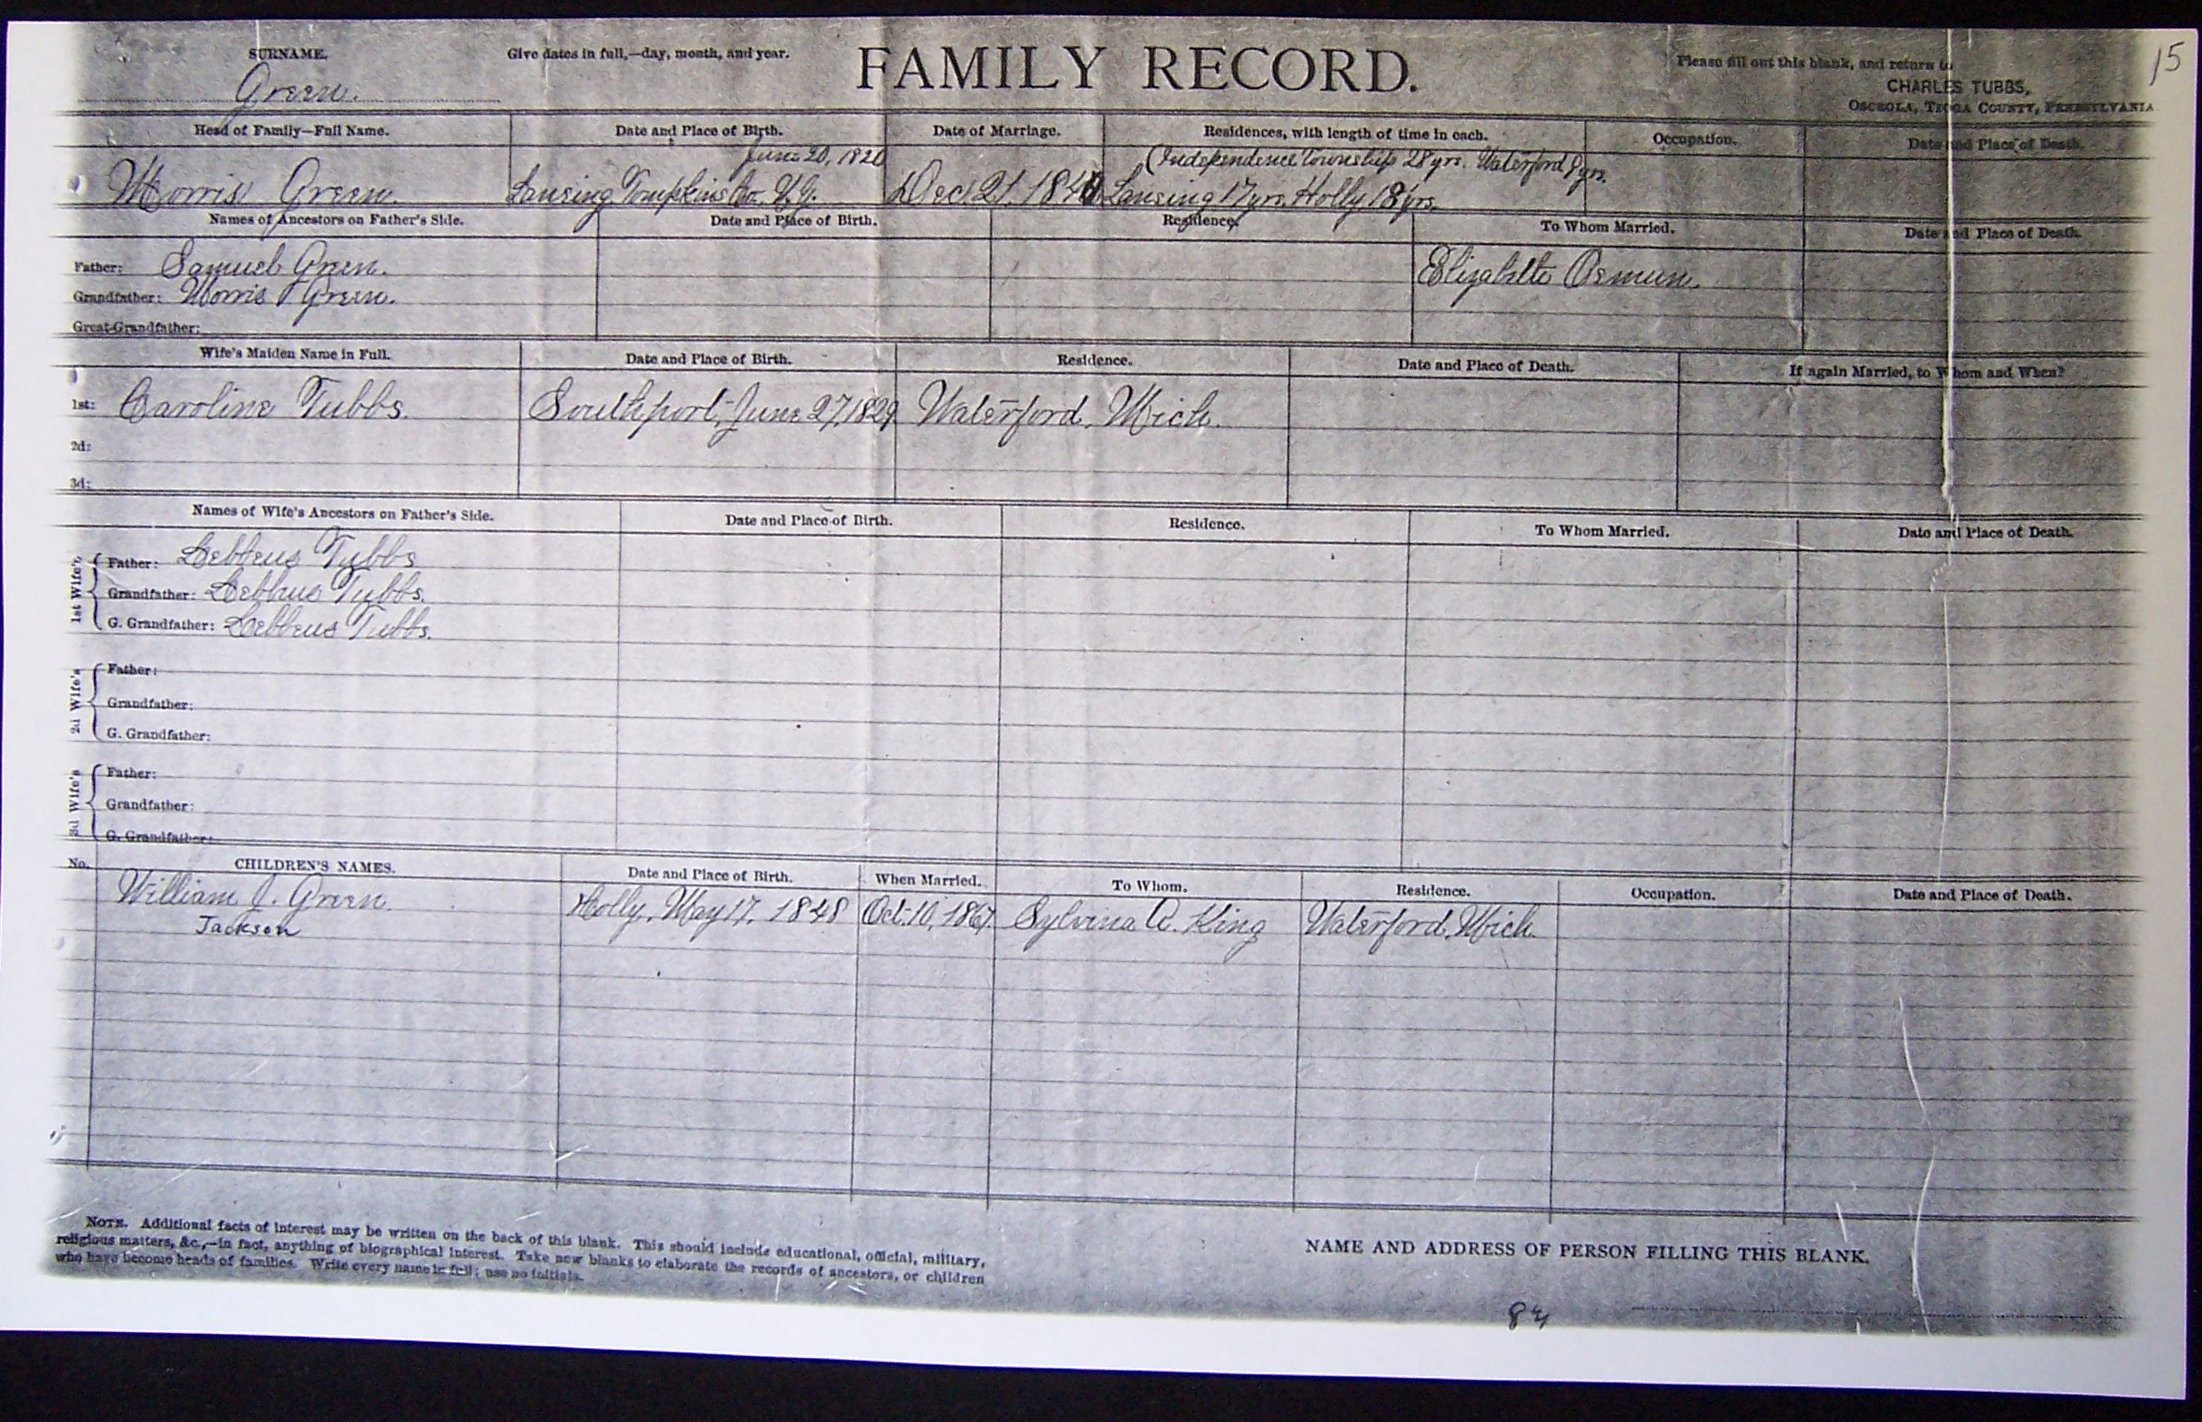 15
SURNAME. Give dates in full,—day, month, and year. FAMILY RECORD. Please fill out this blank, and return to
CHARLES TUBBS,
Green. OSCEOLA, TIOGA COUNTY, PENNSYLVANIA
Head of Family—Full Name. Date and Place of Birth. Date of Marriage. Residences, with length of time in each. Occupation. Date and Place of Death.
June 20, 1820 (Independence Township 28 yrs. Waterford 9 yrs.
Morris Green. Lansing Tompkins Co. N.Y. Dec. 21, 184 Lansing 17 yrs, Holly 18 yrs.
Names of Ancestors on Father's Side. Date and Place of Birth. Residence. To Whom Married. Date and Place of Death.
Father: Samuel Green. Elizabette Osmun.
Grandfather: Morris Green.
Great-Grandfather:
Wife's Maiden Name in Full. Date and Place of Birth. Residence. Date and Place of Death. If again Married, to Whom and When?
1st: Caroline Tubbs. Southport, June 27, 1829 Waterford, Mich.
2d:
3d:
Names of Wife's Ancestors on Father's Side. Date and Place of Birth. Residence. To Whom Married. Date and Place of Death.
1st Wife's
Father: Lebbeus Tubbs
Grandfather: Lebbeus Tubbs.
G. Grandfather: Lebbeus Tubbs.
2d Wife's
Father:
Grandfather:
G. Grandfather:
3d Wife's
Father:
Grandfather:
G. Grandfather:
No. CHILDREN'S NAMES. Date and Place of Birth. When Married. To Whom. Residence. Occupation. Date and Place of Death.
William J. Green. Holly, May 17, 1848 Oct. 10, 1867. Sylvina A. King Waterford, Mich.
Jackson
NOTE. Additional facts of interest may be written on the back of this blank. This should include educational, official, military,
religious matters, &c.,—in fact, anything of biographical interest. Take new blanks to elaborate the records of ancestors, or children
who have become heads of families. Write every name in full; use no initials.
NAME AND ADDRESS OF PERSON FILLING THIS BLANK.